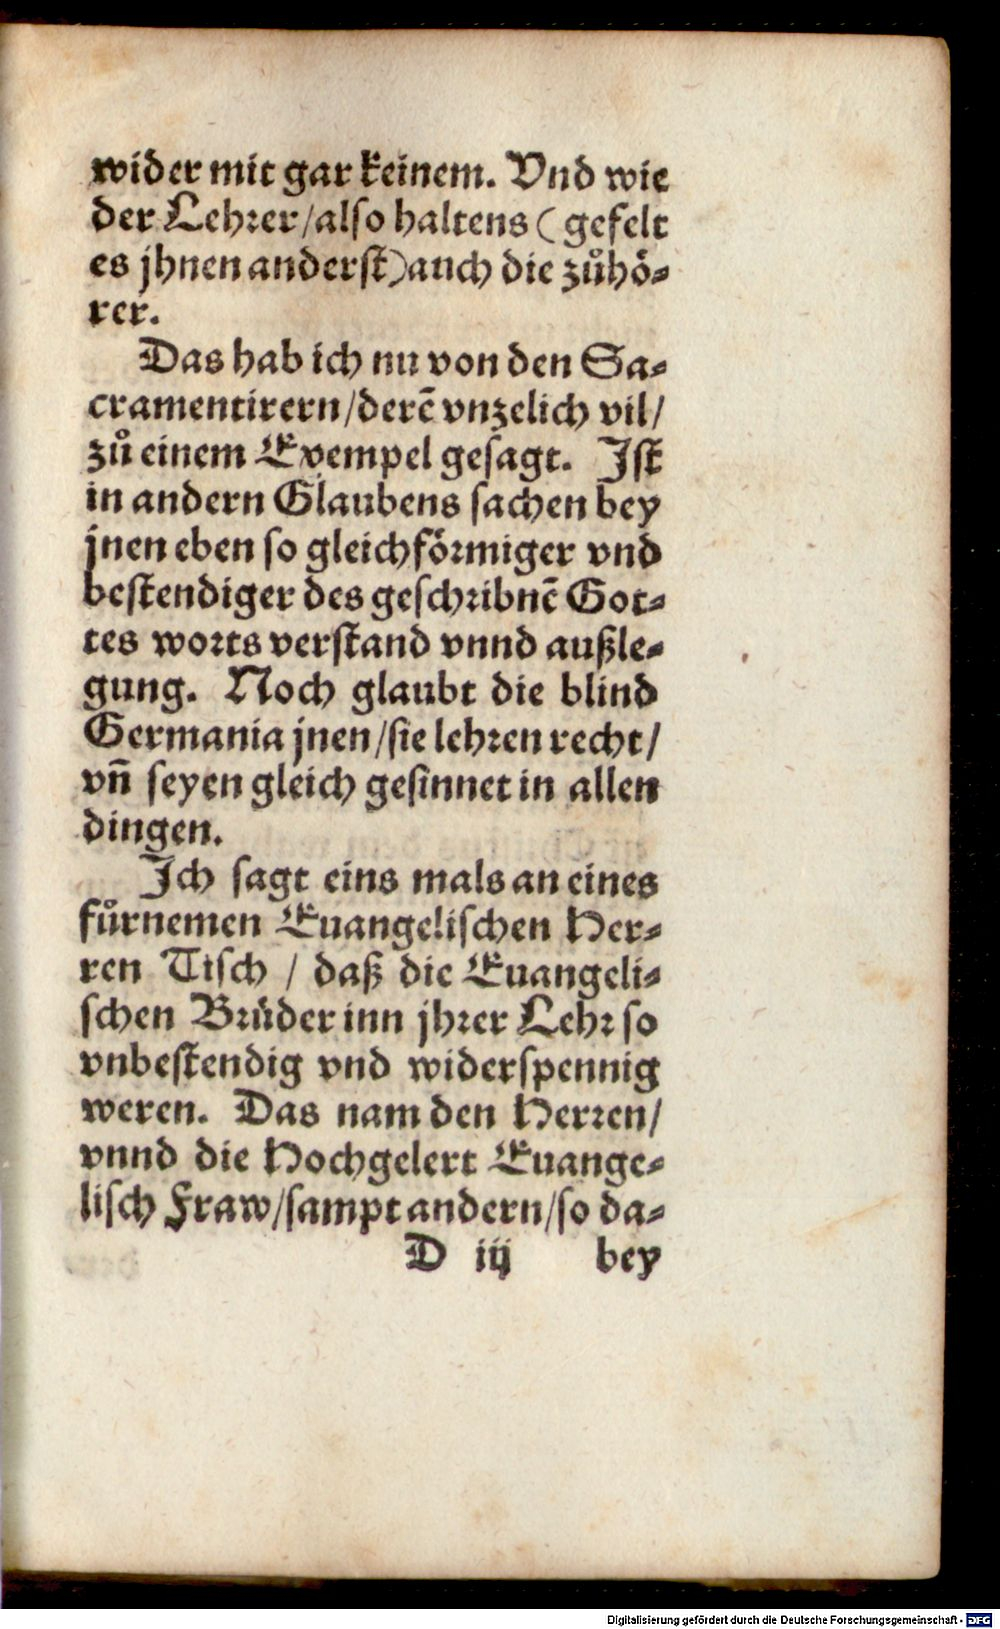 wider mit gar keinem. Vnd wie
der Lehrer/also haltens (gefelt
es jhnen anderst) auch die zuͦhoͤ-
rer.
Das hab ich nu von den Sa-
cramentirern/derē vnzelich vil/
zuͦ einem Exempel gesagt. Ist
in andern Glaubens sachen bey
jnen eben so gleichfoͤrmiger vnd
bestendiger des geschribnē Got-
tes worts verstand vnnd außle-
gung. Noch glaubt die blind
Germania jnen/sie lehren recht/
vn̄ seyen gleich gesinnet in allen
dingen.
Ich sagt eins mals an eines
fuͤrnemen Euangelischen Her-
ren Tisch / daß die Euangeli-
schen Bruͤder inn jhrer Lehr so
vnbestendig vnd widerspennig
weren. Das nam den Herren/
vnnd die Hochgelert Euange-
lisch Fraw/sampt andern/so da-
D iij bey
Digitalisierung gefördert durch die Deutsche Forschungsgemeinschaft - DFG